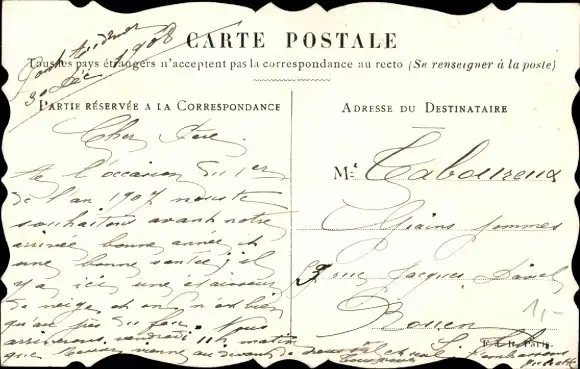 30 Déc 1908
CARTE POSTALE
Tous les pays étrangers n'acceptent pas la correspondance au recto (Se renseigner à la poste)
PARTIE RÉSERVÉE A LA CORRESPONDANCE
Cher Frère
A l'occasion du 1er
de l'an 1907 nous te
souhaitons avant notre
arrivée bonne année et
une bonne santée, il
y a ici une épaisseur
de neige et on n'est bien
qu'au près du feu. Nous
arriverons vendredi 11h matin
que vienne au devant de
ADRESSE DU DESTINATAIRE
Mr Taboureux
3 rue Jacques
Rouen
1,-
E. L. R. Paris